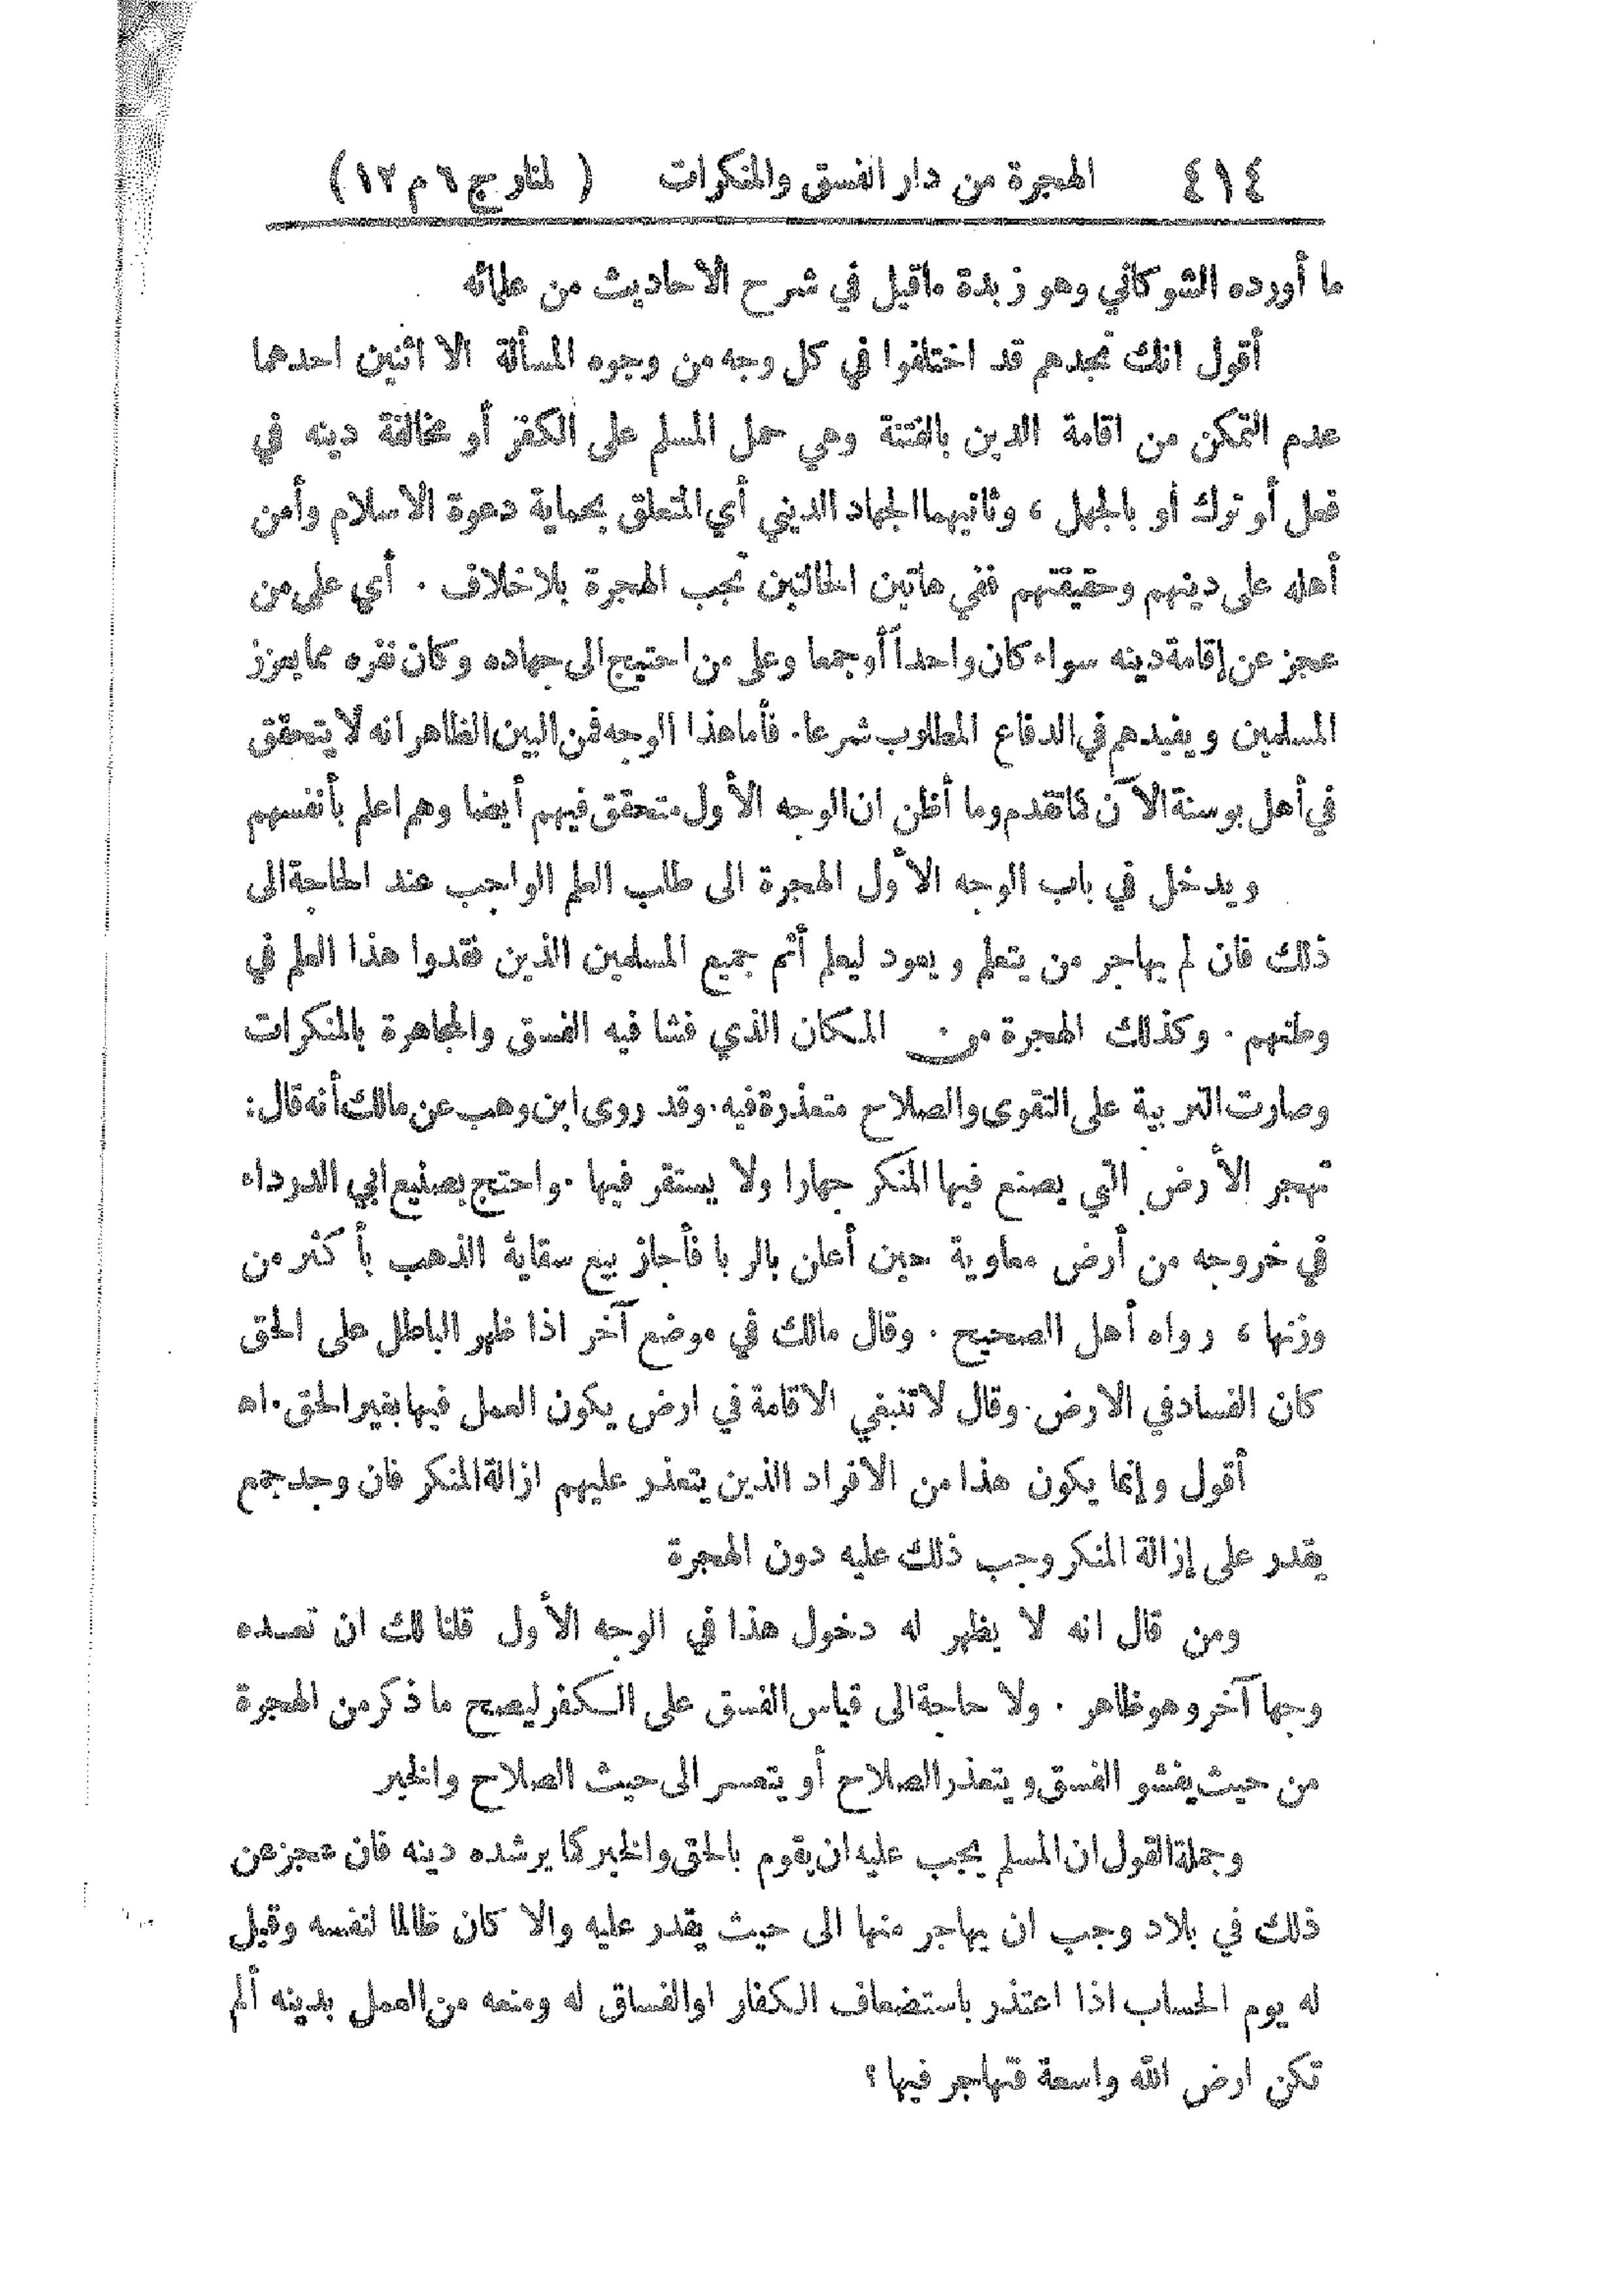 ٤١٤ الهجرة من دار الفسق والمنكرات ( لمنار ج ٦ م ١٢ )
ما أورده الشوكاني وهو زبدة ماقيل في شرح الاحاديث من علمائه
أقول انك تجدهم قد اختلفوا في كل وجه من وجوه المسألة الا اثنين احدهما
عدم التمكن من اقامة الدين بالفتنة وهي حمل المسلم على الكفر أو مخالفة دينه في
فعل أو ترك أو بالجهل ، وثانيهما الجهاد الديني أي المتعلق بحماية دعوة الاسلام وأمن
أهله على دينهم وحقيقتهم ففي هاتين الحالتين تجب الهجرة بلا خلاف . أي على من
عجز عن إقامة دينه سواء كان واحداً أو جمعا وعلى من احتيج الى جهاده وكان نفره مما يعزز
المسلمين ويفيدهم في الدفاع المطلوب شرعا . فأما هذا الوجه فمن البين الظاهر انه لا يتحقق
في أهل بوسنة الآن كما تقدم وما أظن ان الوجه الأول متحقق فيهم أيضا وهم اعلم بأنفسهم
ويدخل في باب الوجه الأول الهجرة الى طلب العلم الواجب عند الحاجة الى
ذلك فان لم يهاجر من يتعلم ويعود ليعلم أثم جميع المسلمين الذين فقدوا هذا العلم في
وطنهم . وكذلك الهجرة من المكان الذي فشا فيه الفسق والمجاهرة بالمنكرات
وصارت التربية على التقوى والصلاح متعذرة فيه . وقد روى ابن وهب عن مالك أنه قال :
تهجر الأرض التي يصنع فيها المنكر جهارا ولا يستقر فيها . واحتج بصنيع ابي الدرداء
في خروجه من أرض معاوية حين أعلن بالربا فأجاز بيع سقاية الذهب بأكثر من
وزنها ، رواه أهل الصحيح . وقال مالك في موضع آخر اذا ظهر الباطل على الحق
كان الفساد في الارض . وقال لا تنبغي الاقامة في ارض يكون العمل فيها بغير الحق . اه
أقول وإنما يكون هذا من الافراد الذين يتعذر عليهم ازالة المنكر فان وجد جمع
يقدر على إزالة المنكر وجب ذلك عليه دون الهجرة
ومن قال انه لا يظهر له دخول هذا في الوجه الأول قلنا لك ان تعده
وجها آخر وهو ظاهر . ولا حاجة الى قياس الفسق على الكفر ليصح ما ذكر من الهجرة
من حيث يفشو الفسق ويتعذر الصلاح أو يتعسر الى حيث الصلاح والخير
وجملة القول ان المسلم يجب عليه ان يقوم بالحق والخير كما يرشده دينه فان عجز عن
ذلك في بلاد وجب ان يهاجر منها الى حيث يقدر عليه والا كان ظالما لنفسه وقيل
له يوم الحساب اذا اعتذر باستضعاف الكفار او الفساق له ومنعه من العمل بدينه ألم
تكن ارض الله واسعة فتهاجر فيها ؟